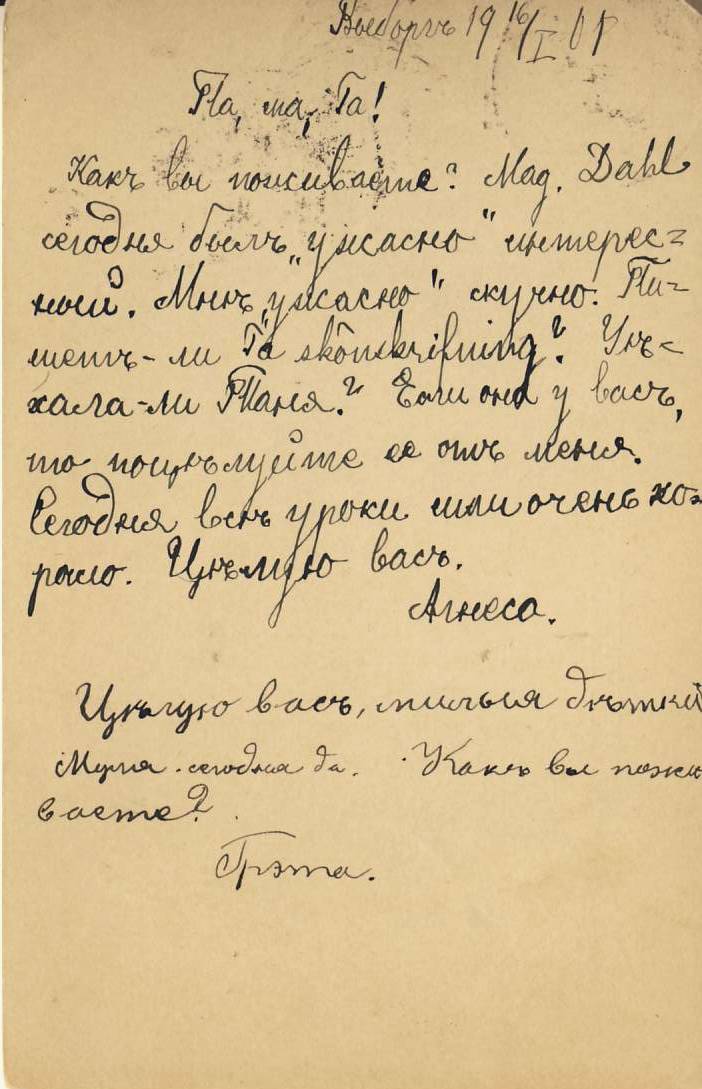 Выборгъ 19 16/I 01
Па, ма, Га!
Какъ вы поживаете? Mag. Dahl
сегодня былъ „ужасно" интерес=
ный. Мнѣ „ужасно" скучно. Пи=
шетъ-ли Га skönskrifning? Уѣ=
хала-ли Таня? Если она у васъ,
то поцѣлуйте ее отъ меня.
Сегодня всѣ уроки шли очень хо=
рошо. Цѣлую васъ.
Агнеса.
Цѣлую васъ, милыя дѣтки
сегодня да. Какъ вы пожи
ваете?
Грэта.